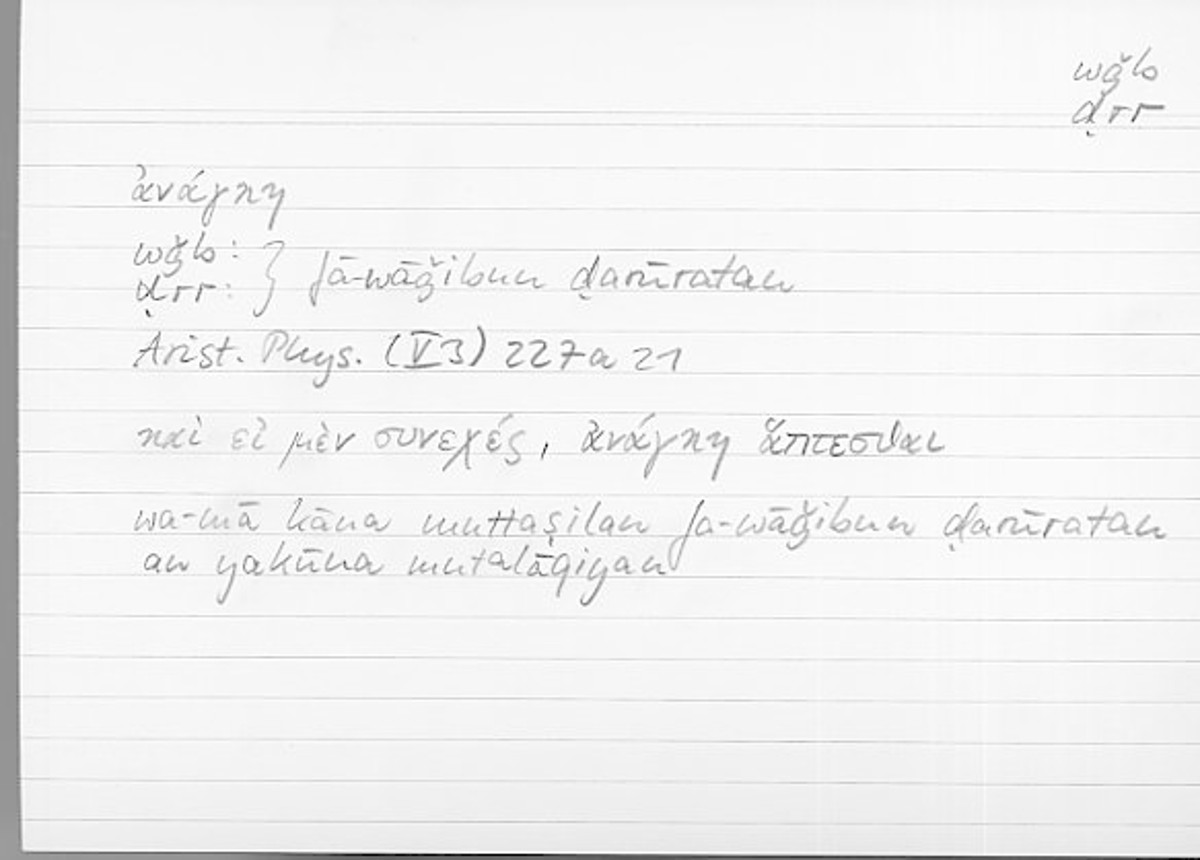 wǧb
ḍrr
ἀνάγκη
wǧb: } fā-wāǧibun ḍarūratan
ḍrr:
Arist. Phys. (V3) 227a 21
καὶ εἰ μὲν συνεχές, ἀνάγκη ἅπτεσθαι
wa-mā kāna muttaṣilan fa-wāǧibun ḍarūratan
an yakūna mutalāqiyan